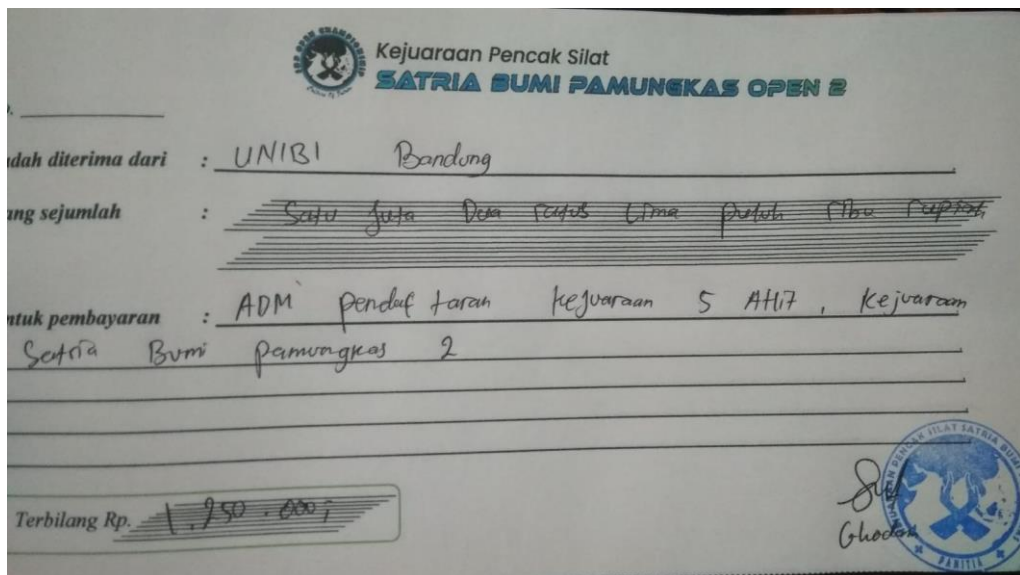 Kejuaraan Pencak Silat
SATRIA BUMI PAMUNGKAS OPEN 2
dah diterima dari : UNIBI Bandung
ang sejumlah : Satu Juta Dua ratus Lima puluh ribu rupiah
ntuk pembayaran : ADM pendaftaran kejuaraan 5 Atlit, Kejuaraan
Satria Bumi pamungkas 2
Terbilang Rp. 1.250.000,-
PENCAK SILAT SATRIA BUMI
PANITIA